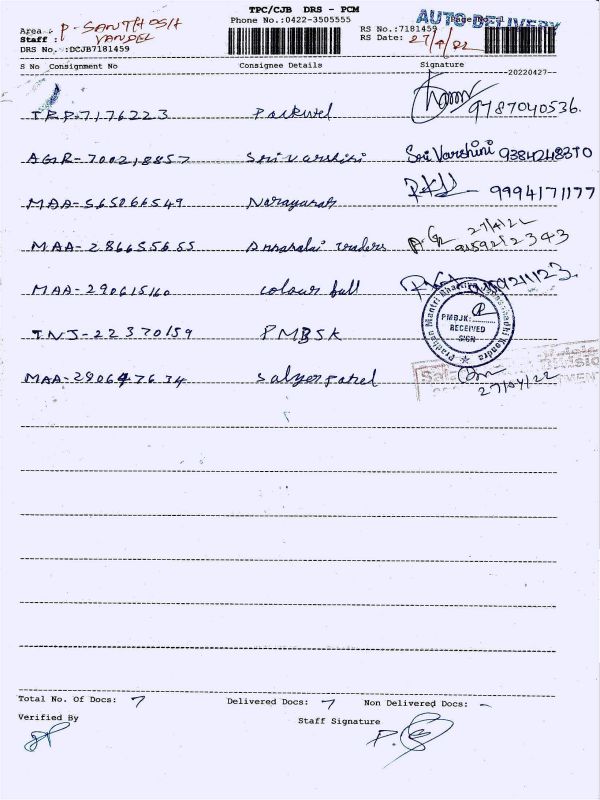 TPC/CJB DRS - PCM
AUTO DELIVERY
Phone No.:0422-3505555
Area : P. SANTHOSH
Staff : VANDEL
RS No.:7181459
RS Date: 27/4/22
DRS No. :DCJB7181459
S No Consignment No Consignee Details Signature
20220427
TRP-7176223 9787040536.
AGR-700218857 Srivarshini Sri Varshini 9384248370
MAA-565066549 Narayanan 9994171177
27/4/22
MAA-286655655 Annamalai traders 9159212343
MAA-290615160 colour full
TNJ-22370159 PMBSK
Pradhan Mantri Bhartiya Janaushadhi Kendra
PMBJK:
RECEIVED
SIGN
MAA-290647634
27/04/22
Total No. Of Docs: 7 Delivered Docs: 7 Non Delivered Docs: -
Verified By Staff Signature